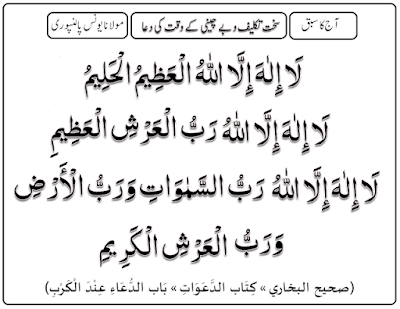 آج کا سبق
سخت تکلیف و بے چینی کے وقت کی دعا
مولانا یونس پالنپوری
لَا إِلٰهَ إِلَّا اللهُ الْعَظِيمُ الْحَلِيمُ
لَا إِلٰهَ إِلَّا اللهُ رَبُّ الْعَرْشِ الْعَظِيمِ
لَا إِلٰهَ إِلَّا اللهُ رَبُّ السَّمٰوَاتِ وَرَبُّ الْأَرْضِ
وَرَبُّ الْعَرْشِ الْكَرِيمِ
(صحيح البخاري » كِتَاب الدَّعَوَاتِ » بَاب الدُّعَاءِ عِنْدَ الْكَرْبِ)